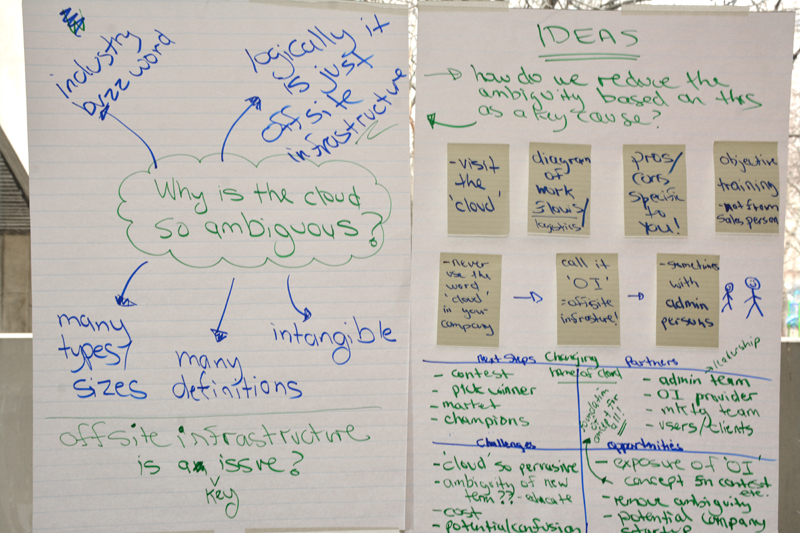 industry
buzz word
logically it
is just
off site
infrastructure
Why is the cloud
so ambiguous?
many
types/
sizes
many
definitions
intangible
offsite infrastructure
is a issue?
key
IDEAS
how do we reduce the
ambiguity based on this
as a key cause?
- visit
the
'cloud'
diagram
of
work
flows/
logistics
pros/
cons
specific
to
you!
objective
training
- not from
sales person
- never
use the
word
'cloud'
in your
company
call it
'OI'
= offsite
infrasture!
- sometimes
with
admin
persons
Next Steps
- contest
- pick winner
- market
- champions
Changing
name of cloud
foundation
of
concept for
all!
Partners
leadership
- admin team
- OI provider
- mktg team
- users/clients
Challenges
- 'cloud' so pervasive
- ambiguity of new
term?? - educate
- cost
- potential confusion
opportunities
- exposure of 'OI'
concept in contest
etc.
- remove ambiguity
- potential company
startup